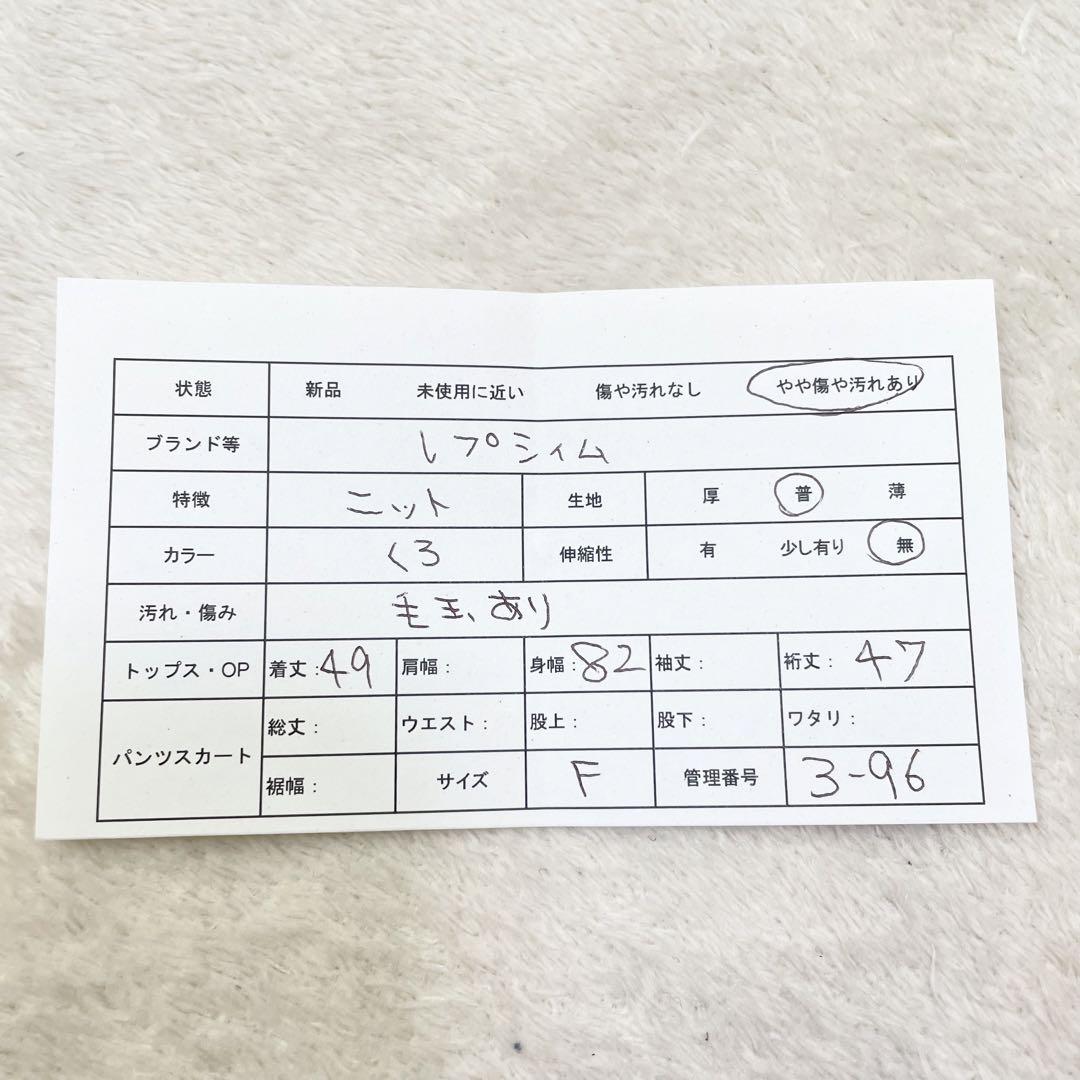 状態 新品 未使用に近い 傷や汚れなし やや傷や汚れあり
ブランド等 レプシィム
特徴 ニット 生地 厚 普 薄
カラー くろ 伸縮性 有 少し有り 無
汚れ・傷み 毛玉、あり
トップス・OP 着丈:49 肩幅: 身幅:82 袖丈: 裄丈:47
パンツスカート 総丈: ウエスト: 股上: 股下: ワタリ:
裾幅: サイズ F 管理番号 3-96